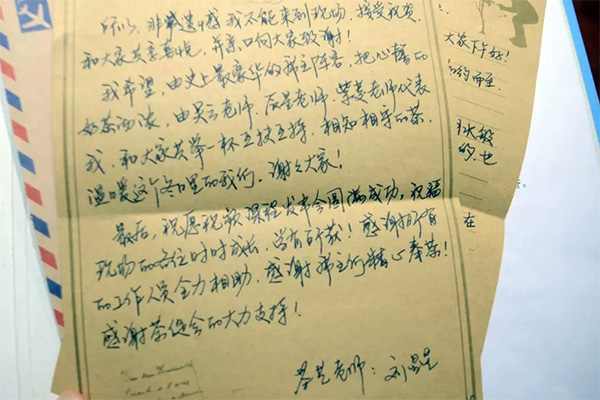 所以，非常遗憾我不能来到现场，接受祝贺，
和大家共享喜悦，并亲口向大家致谢！
我希望，由史上最豪华的席主阵容，把心精品
奶茶西浓，由吴云老师、辰星老师、紫菱老师代表
我，和大家共举一杯互扶互持、相知相守的茶，
温暖这个冬日里的我们。谢谢大家！
最后，祝愿祝歌课程发布会圆满成功，祝福
现场的各位时时成长，皆有所获！感谢所有
的工作人员全力相助，感谢席主们精心奉茶！
感谢茶促会的大力支持！
老师：刘昌星
大家下午好！
的
也
在